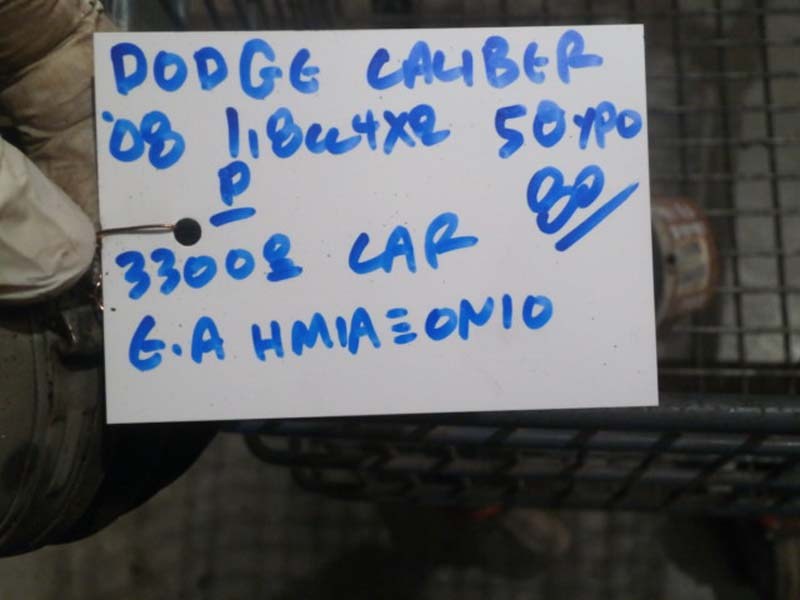 DODGE CALIBER
'08 1,8cc 4X2 5ΘΥΡΟ
P 80
33002 CAR
E.A ΗΜΙΑΞΟΝΙΟ